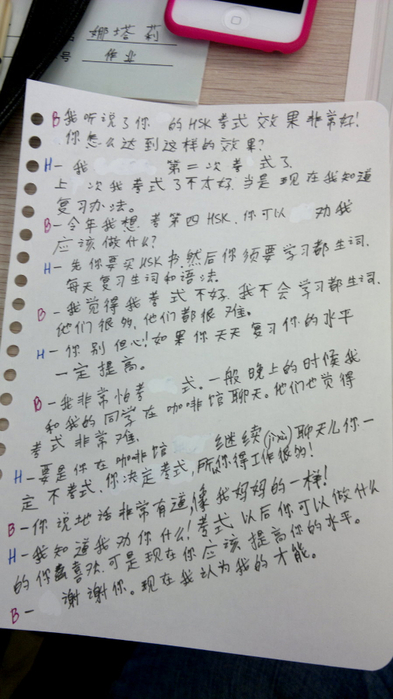 娜塔莉
号 作业
B-我听说了你 的HSK考式效果非常好!
你怎么达到这样的效果?
H-我 第二次考式了.
上 次我考式了不太好.当是现在我知道
复习办法。
B-今年我想 考第四HSK.你可以 劝我
应该做什么?
H-先你要买HSK书.然后你须要学习都生词.
每天复习生词和语法.
B-我觉得我考式不好.我不会学习都生词.
他们很多,他们都很难.
H-你别但心!如果你天天复习你的水平
一定提高。
B-我非常怕考 式.一般晚上的时候我
和我的同学在咖啡馆聊天。他们也觉得
考式非常难.
H-要是你在咖啡馆 继续(jìxù)聊天儿你一
定不考式.你决定考式,所你得工作很多!
B-你说地话非常有道,像我妈妈的一样!
H-我知道我劝你什么!考式以后你可以做什么
的你 喜欢.可是现在你应该提高你的水平。
B- 谢谢你。现在我认为我的才能。